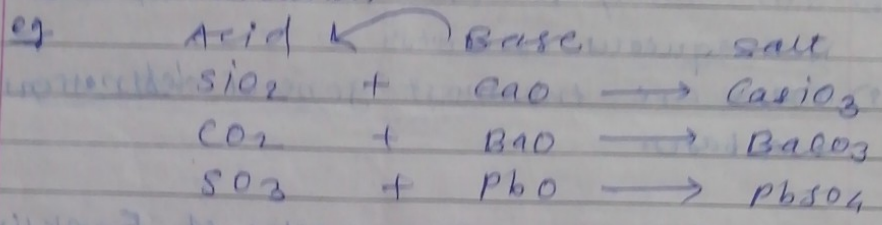 eg Acid Base Salt
SiO2 + CaO → CaSiO3
CO2 + BaO → BaCO3
SO3 + PbO → PbSO4